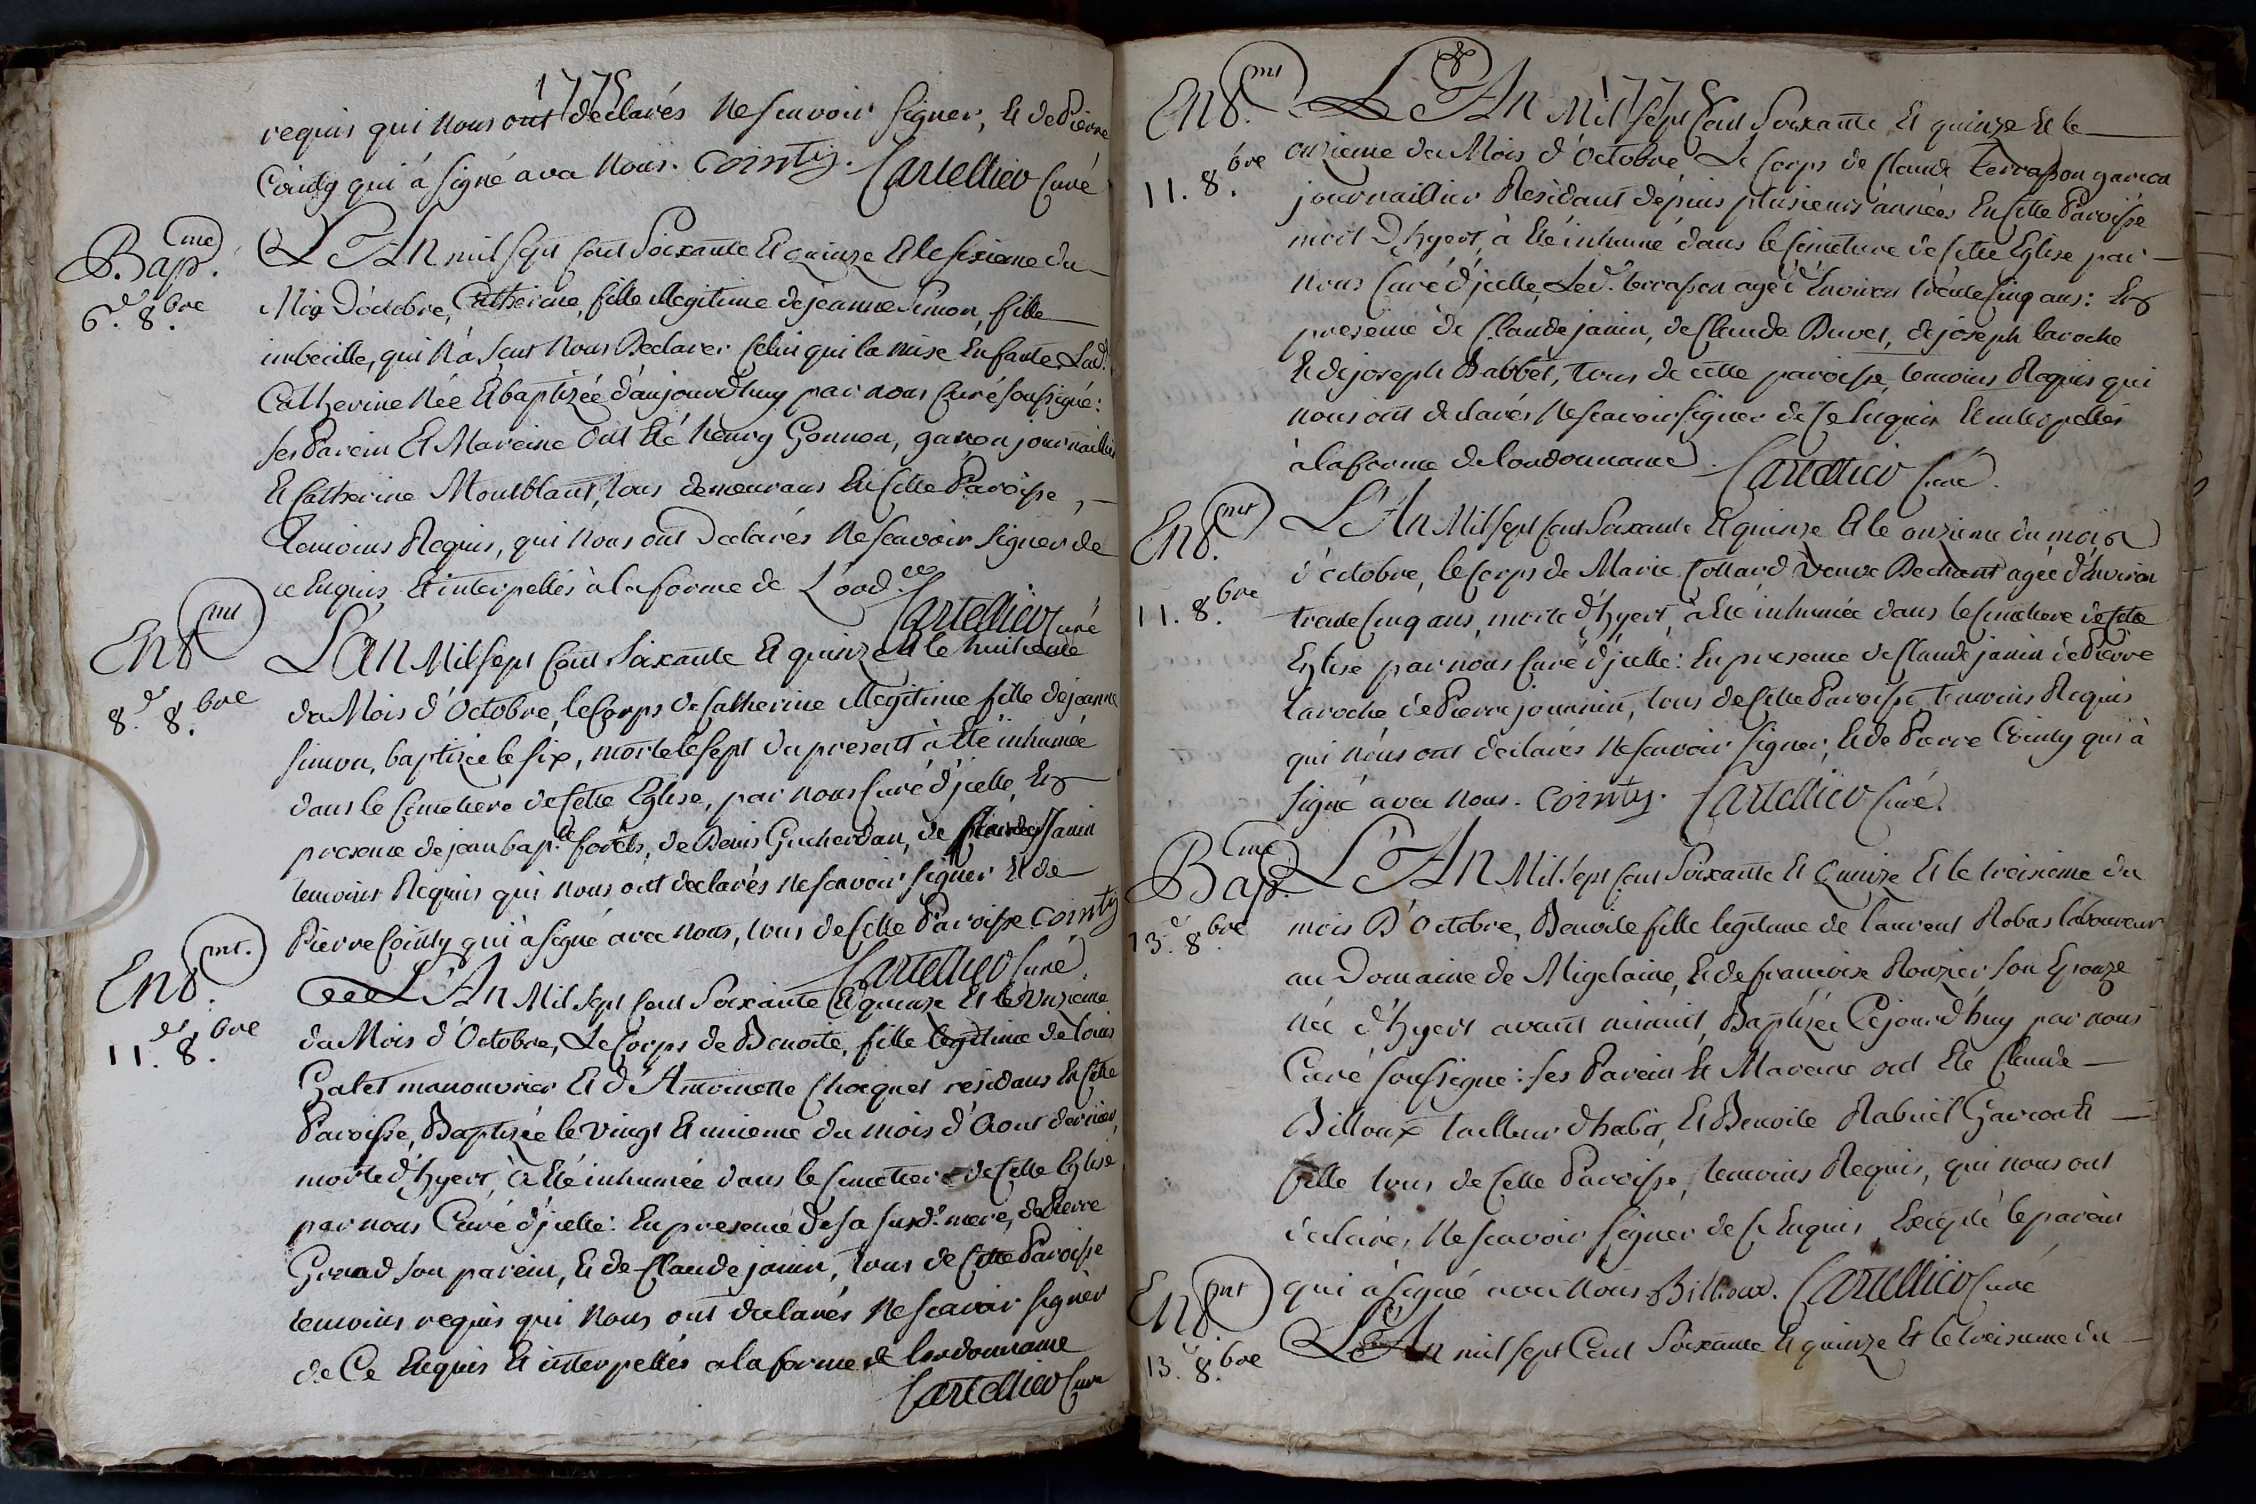 1775
requis qui nous ont declarés ne scavoir signer, et de Pierre
Cointy qui à signé avec nous. Cointy. Cartellier Curé
Bap.me
6.e 8.bre
L'An mil sept cent soixante et quinze et le sixieme du
Mois d'octobre, Catherine, fille illegitime de jeanne Simon, fille
imbecille, qui n'a sçut nous declarer celui qui la mise enfante, Lad.
Catherine née et baptizée d'aujourd'huy par nous Curé soussigné:
ses Parein et Mareine ont été henry Gonnon, garçon journaillier
et Catherine Montblant, tous demeurans en cette Paroisse,
temoins Requis, qui nous ont declarés ne scavoir signer de
ce Enquis et interpellés à la forme de L'ord.ce
Cartellier Curé
En.mt
8.e 8.bre
L'An Mil sept cent soixante et quinze et le huitieme
du Mois d'Octobre, le Corps de Catherine illegitime fille de jeanne
simon, baptizée le six, morte le sept du present à été inhumée
dans le Cimetiere de cette Eglise, par nous Curé d'jcelle, En
presence de jean bap.te forêts, de Denis Gucherdan, de Claude Janin
temoins Requis qui nous ont declarés ne scavoir signer et de
Pierre Cointy qui à signé avec nous, tous de cette Paroisse. Cointy
Cartellier Curé.
En.mt.
11.e 8.bre
L'An Mil sept cent soixante et quinze et le onzieme
du Mois d'Octobre, Le Corps de Benoite, fille legitime de Louis
Galet manouvrier et d'Antoinette Choequet residans en cette
Paroisse, Baptizée le vingt et unieme du mois d'Aout dernier,
morte d'hyert, à été inhumée dans le cimetiere de cette Eglise
par nous Curé d'jcelle: En presence de sa susd.e mere, de Pierre
Greuad son parein, et de Claude janin, tous de cette Paroisse
temoins requis qui nous ont declarés ne scavoir signér
de Ce Enquis et interpellés a la forme de l'ordonnance
Cartellier Curé
1775
En.mt
11. 8.bre
L'An Mil sept cent soixante et quinze et le
onzieme du Mois d'Octobre Le Corps de Claude terrasson garcon
journaillier Residant depuis plusieurs années En cette Paroisse
mort d'hyert, à été inhumé dans le cimetiere de cette Eglise par
nous Curé d'jcelle, Led. terrasson agé d'Environ trente cinq ans: En
presence de Claude janin, de Claude Buvet, de joseph laroche
et de joseph Babbet, tous de cette paroisse temoins Requis qui
nous ont declarés ne scavoir signer de Ce Enquis et interpellés
à la forme de lordonnance. Cartellier Curé.
En.mt
11. 8.bre
L'An Mil sept cent soixante et quinze et le onzieme du mois
d'octobre, le Corps de Marie Collard Veuve Dechant agée d'Environ
trente cinq ans, morte d'hyert, à été inhumée dans le cimetiere de cette
Eglise par nous Curé d'jcelle: En presence de Claude janin de Pierre
laroche de Pierre joannin, tous de cette Paroisse temoins Requis
qui nous ont declarés ne scavoir signer, et de Pierre Cointy qui à
signé avec nous. Cointy. Cartellier Curé.
Bap.me
13.e 8.bre
L'An Mil sept cent soixante et quinze et le treisieme du
mois d'Octobre, Benoite fille legitime de Laurent Robas laboureur
au Domaine de Migelaine, et de francoise Rouzier son Epouze
née d'hyert avant minuit, Baptizée Cejourd'huy par nous
Curé soussigné: ses Parein et Mareine ont été Claude
Billoux tailleur d'habit, et Benoite Rabuel Garcon et
fille tous de cette Paroisse, temoins Requis, qui nous ont
declarés ne scavoir signer de Ce Enquis, Excepté le parein
qui à signé avec nous Billioux. Cartellier Curé
En.mt
13.e 8.bre
L'An mil sept Cent soixante et quinze et le treisieme du